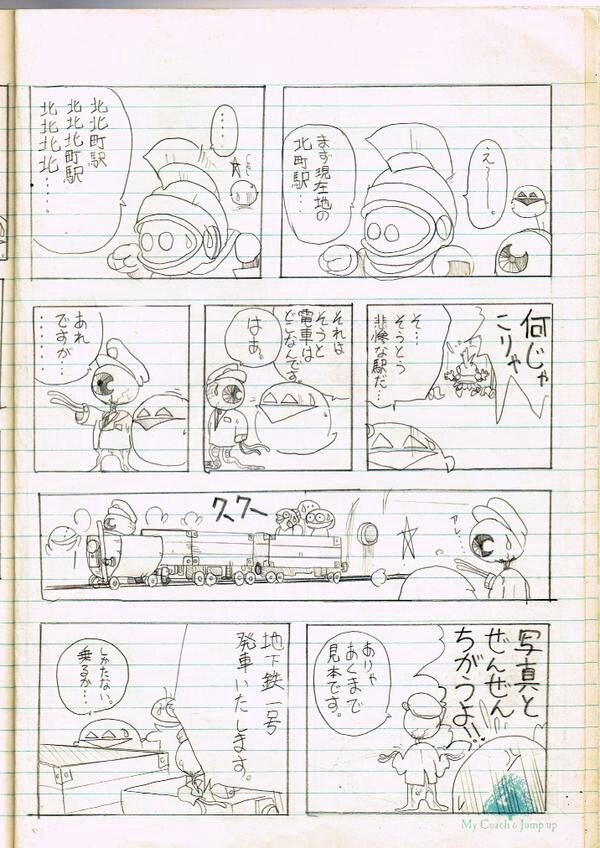 え〜〜。
まず現在地の
北町駅…
‥‥
北北町駅
北北北町駅
北北北北……
何じゃ
こりゃ
そ…
そうとう
悲惨な駅だ…
それは
そうと
電車は
どこなんです。
はぁ。
あれ
ですが…
‥‥‥
アレ…
クークー
写真と
ぜんぜん
ちがうよ!!
ありゃ
あくまで
見本です。
地下鉄一号
発車いたします。
しかたない。
乗るか…
My Coach & Jump up